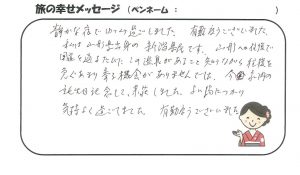 旅の幸せメッセージ（ペンネーム：　　　　　）
静かな宿でゆっくり過ごしました。有難うございました。
私は山形県出身の新潟県民です。山形への往復で
国道を通るたびに この温泉があること 知りながら 往復を
急ぐあまり 寄る機会がありませんでした。今回 家内の
誕生日記念として、来荘しました。よい湯につかり
気持よく過ごせてました。有難うございました。